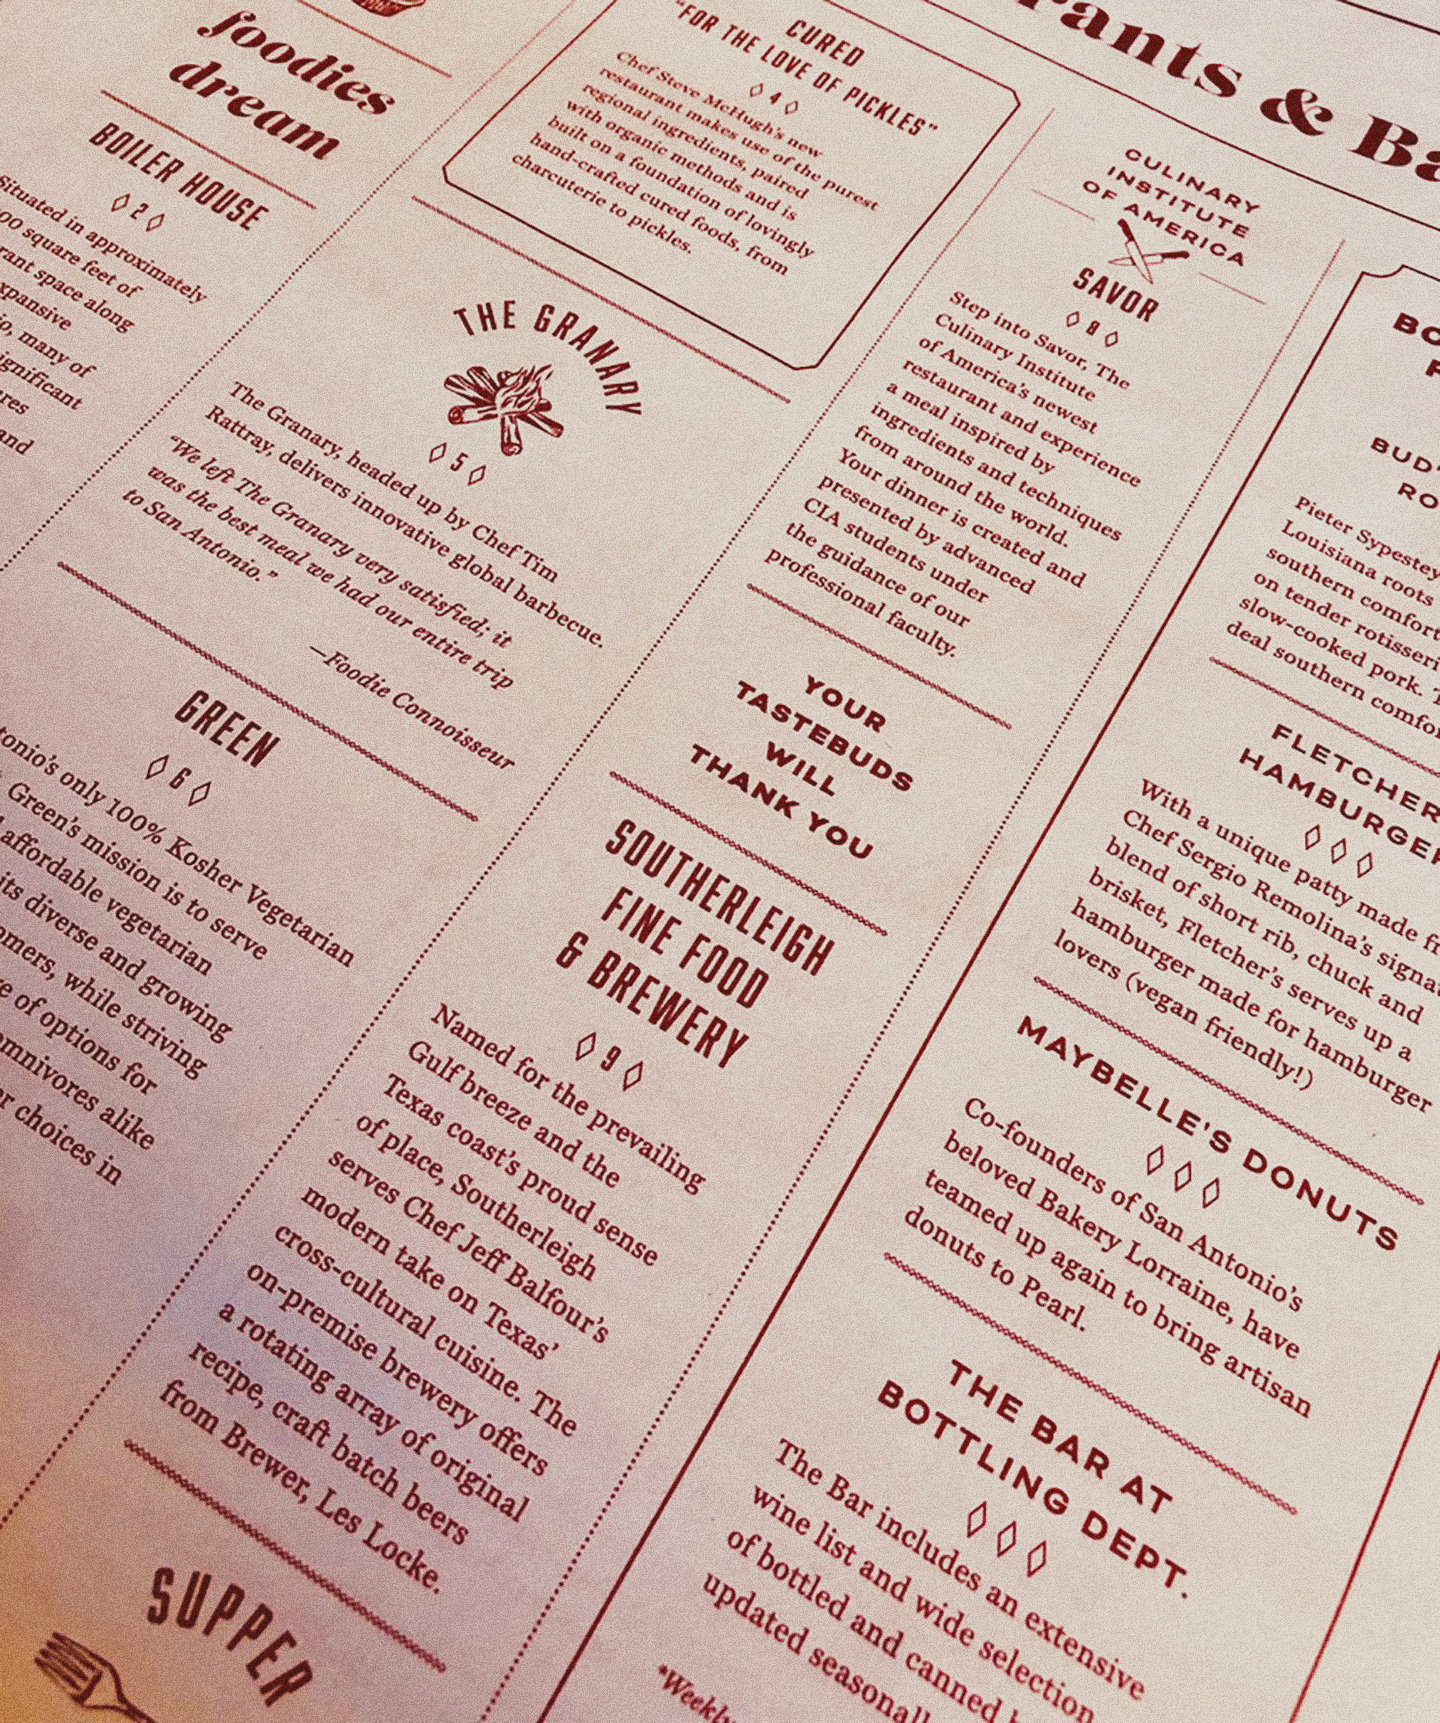 foodies
dream
BOILER HOUSE
2
Situated in approximately
square feet of
space along
many of
and
CURED
"FOR THE LOVE OF PICKLES"
4
Chef Steve McHugh's new
restaurant makes use of the purest
regional ingredients, paired
with organic methods and is
built on a foundation of lovingly
hand-crafted cured foods, from
charcuterie to pickles.
THE GRANARY
5
The Granary, headed up by Chef Tim
Rattray, delivers innovative global barbecue.
"We left The Granary very satisfied; it
was the best meal we had our entire trip
to San Antonio."
—Foodie Connoisseur
GREEN
6
only 100% Kosher Vegetarian
Green's mission is to serve
affordable vegetarian
its diverse and growing
while striving
of options for
omnivores alike
choices in
& Ba
CULINARY
INSTITUTE
OF AMERICA
SAVOR
8
Step into Savor, The
Culinary Institute
of America's newest
restaurant and experience
a meal inspired by
ingredients and techniques
from around the world.
Your dinner is created and
presented by advanced
CIA students under
the guidance of our
professional faculty.
YOUR
TASTEBUDS
WILL
THANK YOU
SOUTHERLEIGH
FINE FOOD
& BREWERY
9
Named for the prevailing
Gulf breeze and the
Texas coast's proud sense
of place, Southerleigh
serves Chef Jeff Balfour's
modern take on Texas'
cross-cultural cuisine. The
on-premise brewery offers
a rotating array of original
recipe, craft batch beers
from Brewer, Les Locke.
SUPPER
BUD'
RO
Pieter Sypestey
Louisiana roots
southern comfort
on tender rotisseri
slow-cooked pork. T
deal southern comfor
FLETCHER
HAMBURGER
With a unique patty made fr
Chef Sergio Remolina's signat
blend of short rib, chuck and
brisket, Fletcher's serves up a
hamburger made for hamburger
lovers (vegan friendly!)
MAYBELLE'S DONUTS
Co-founders of San Antonio's
beloved Bakery Lorraine, have
teamed up again to bring artisan
donuts to Pearl.
THE BAR AT
BOTTLING DEPT.
The Bar includes an extensive
wine list and wide selection
of bottled and canned
updated seasonall
*Weekly